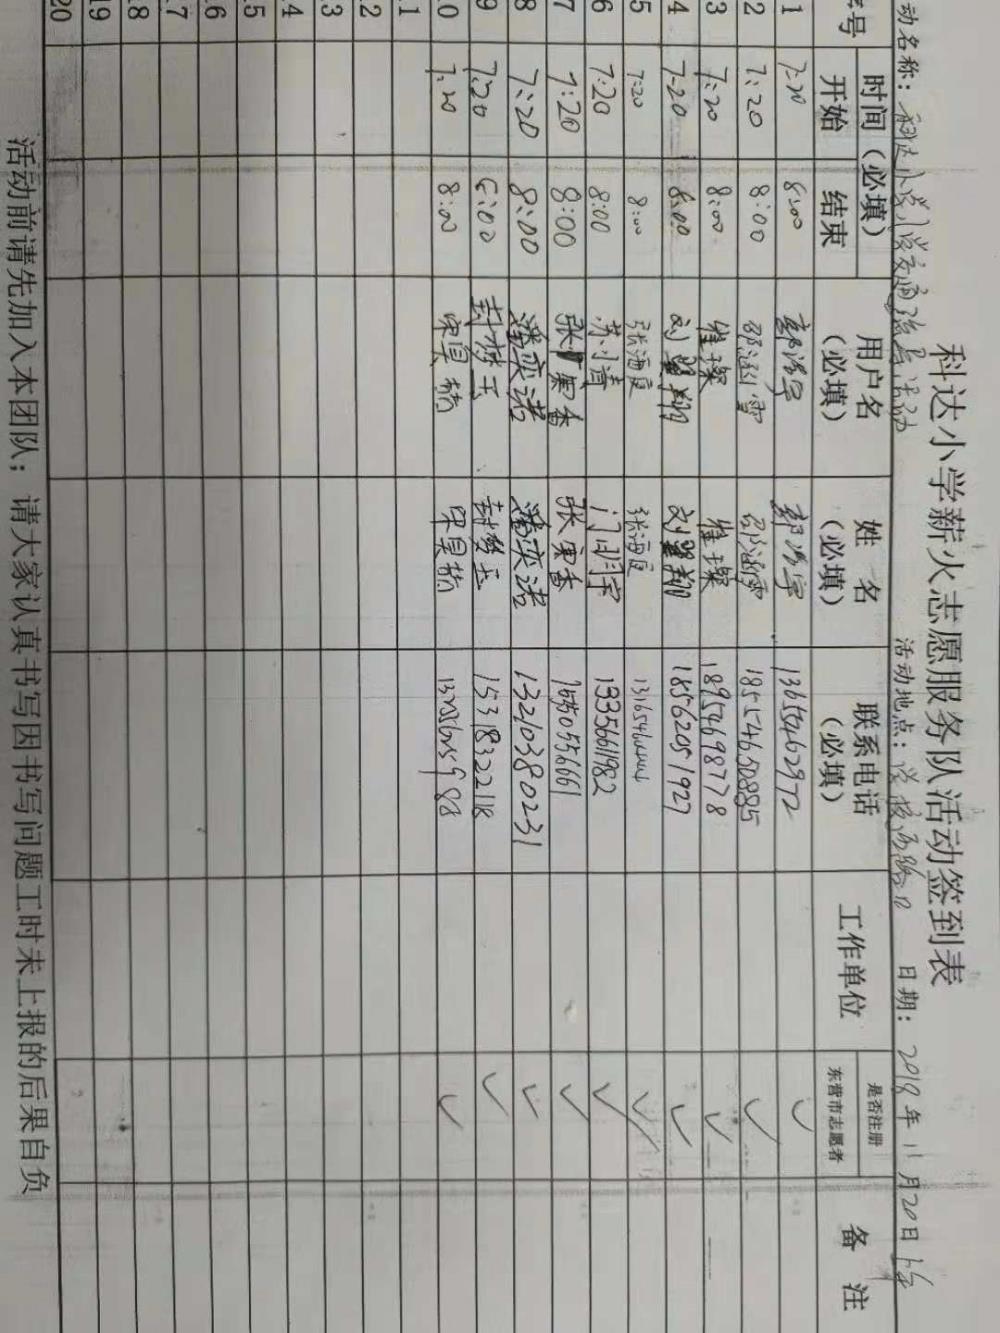 科达小学薪火志愿服务队活动签到表
动名称：科达小学小学交通疏导活动 活动地点：学校西路口 日期：2018年11月20日上午
序号 时间（必填） 开始 结束 用户名（必填） 姓名（必填） 联系电话（必填） 工作单位 是否注册东营市志愿者 备注
1 7:20 8:00 郭浩宇 郭浩宇 13655462972 ✓
2 7:20 8:00 邵涵雪 邵涵雪 18554650885 ✓
3 7:20 8:00 崔璨 崔璨 18954698778 ✓
4 7:20 8:00 刘翼翔 刘翼翔 18562051927 ✓
5 7:20 8:00 张海庭 张海庭 ✓
6 7:20 8:00 苏小清 13356611982 ✓
7 7:20 8:00 张寅香 张寅香 ✓
8 7:20 8:00 潘奕诺 潘奕诺 13210380231 ✓
9 7:20 8:00 封梦玉 封梦玉 15318322118 ✓
.0 7:20 8:00 ✓
.1
.2
.3
.4
.5
.6
.7
.8
19
20
活动前请先加入本团队；请大家认真书写因书写问题工时未上报的后果自负